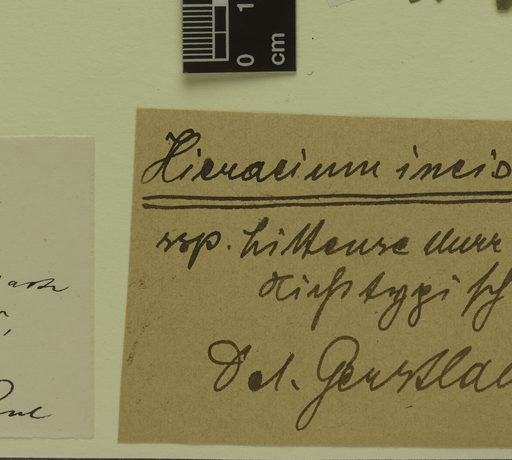 0 1
cm
Hieracium incis
ssp. Littense Murr
nichttypisch
Det. Gerstlau